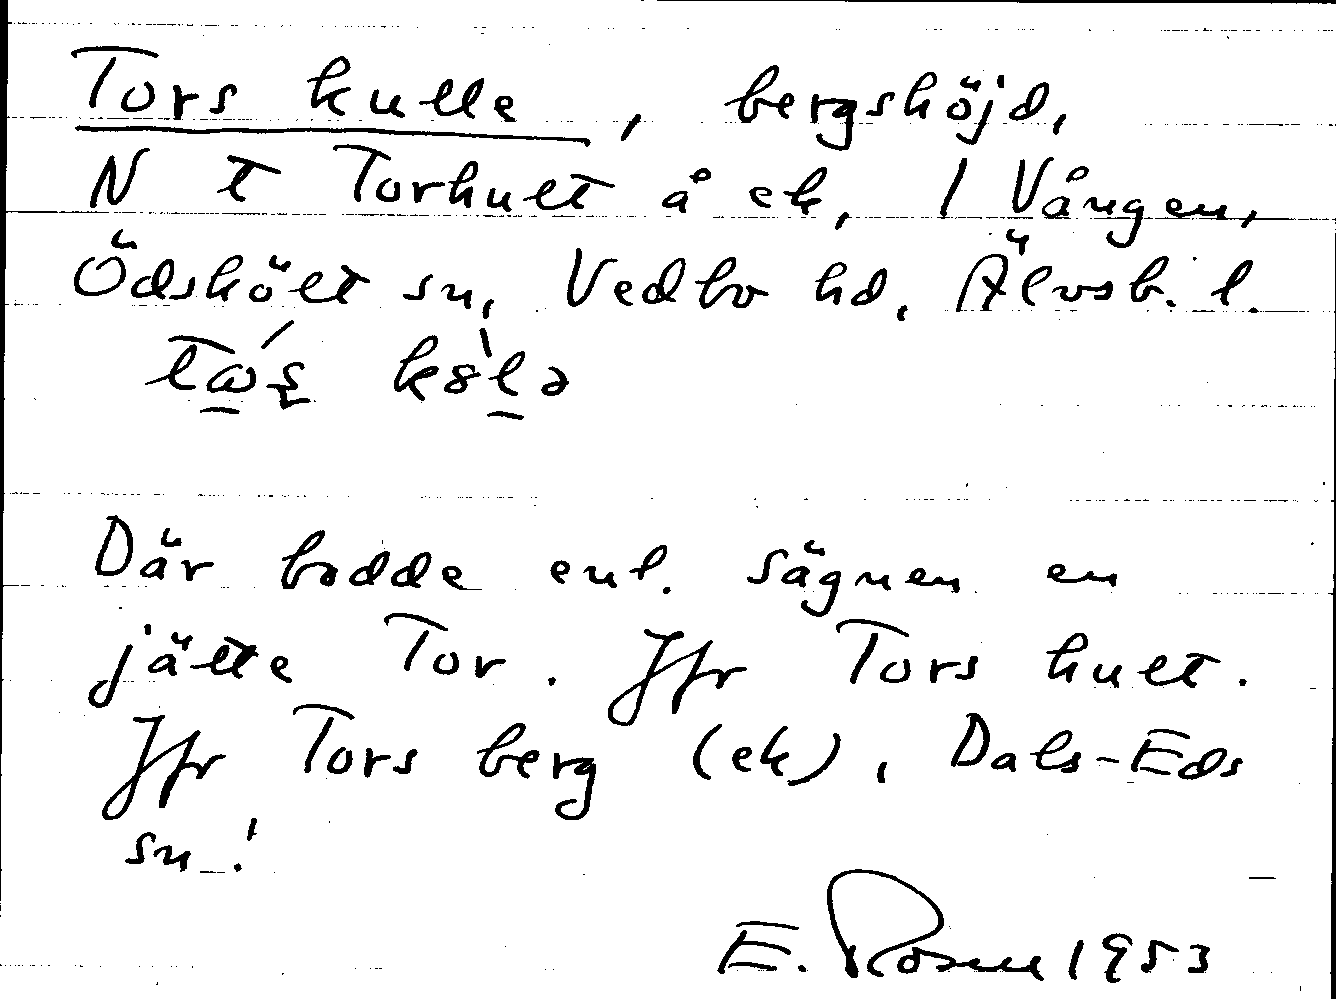 Tors kulle, bergshöjd,
N t Torhult å ek, 1 Vången,
Ödskölt sn, Vedbo hd, Älvsb. l.
Där bodde enl. sägnen en
jätte Tor. Jfr Tors hult.
Jfr Tors berg (ek), Dals-Eds
sn!
E. Rosell 1953